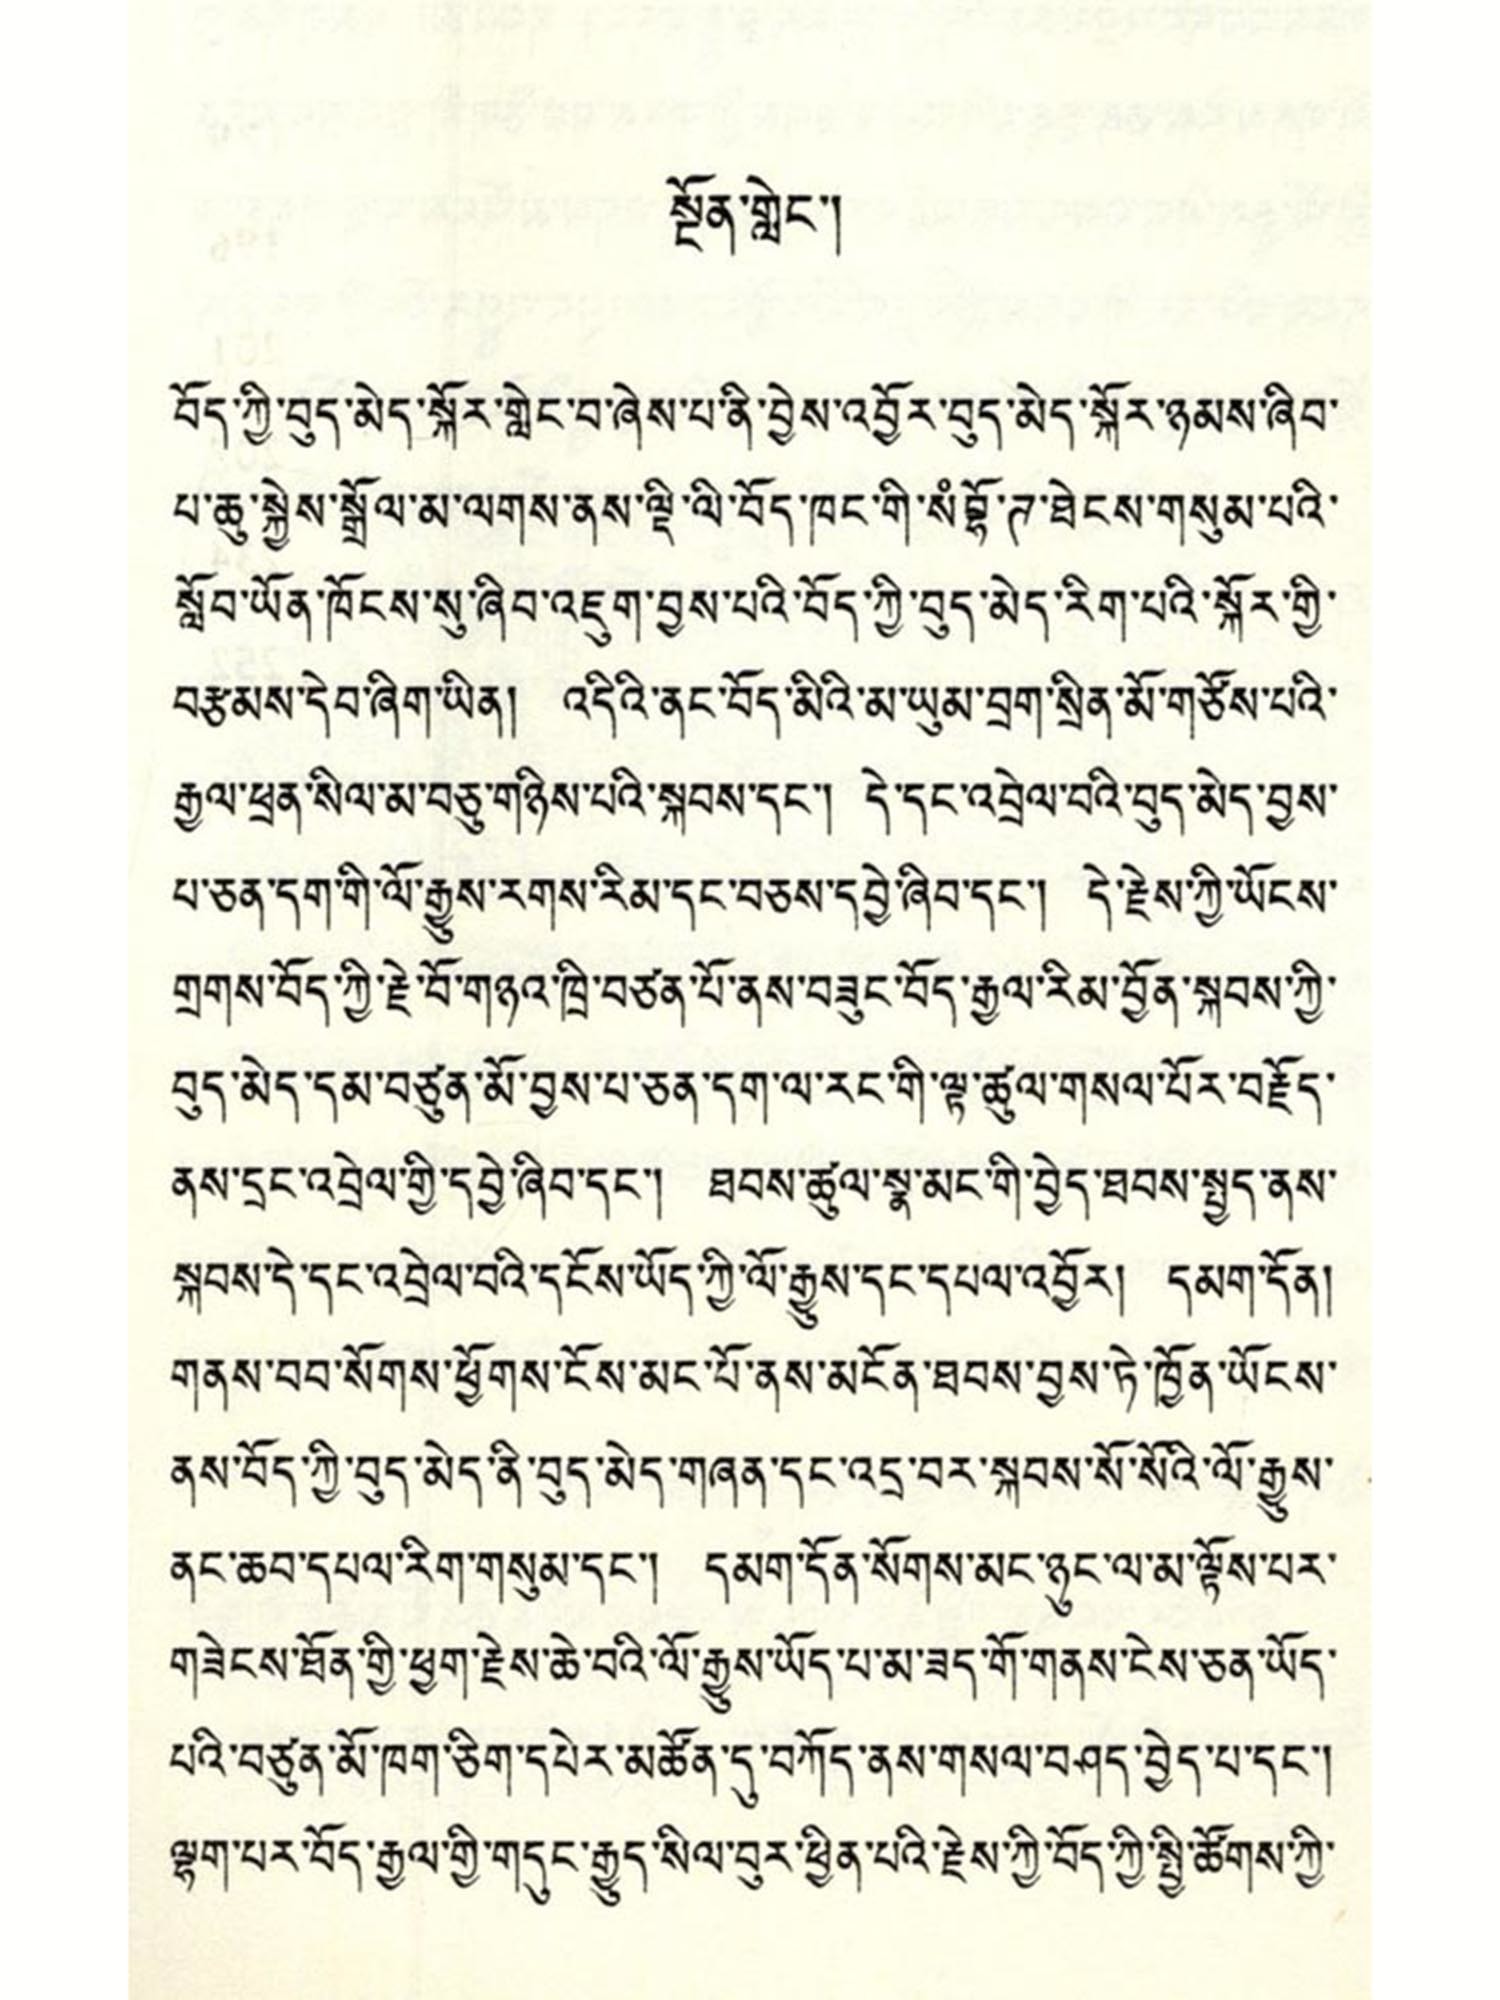 སྔོན་གླེང་།
བོད་ཀྱི་བུད་མེད་སྐོར་གླེང་བ་ཞེས་པ་ནི་བྱེས་འབྱོར་བུད་མེད་སྐོར་ཉམས་ཞིབ་
པ་ཆུ་སྐྱེས་སྒྲོལ་མ་ལགས་ནས་ལྡི་ལི་བོད་ཁང་གི་སཾ་བྷོ་ཊ་ཐེངས་གསུམ་པའི་
སློབ་ཡོན་ཁོངས་སུ་ཞིབ་འཇུག་བྱས་པའི་བོད་ཀྱི་བུད་མེད་རིག་པའི་སྐོར་གྱི་
བརྩམས་དེབ་ཞིག་ཡིན། འདིའི་ནང་བོད་མིའི་མ་ཡུམ་བྲག་སྲིན་མོ་གཙོས་པའི་
རྒྱལ་ཕྲན་སིལ་མ་བཅུ་གཉིས་པའི་སྐབས་དང་། དེ་དང་འབྲེལ་བའི་བུད་མེད་བྱས་
པ་ཅན་དག་གི་ལོ་རྒྱུས་རགས་རིམ་དང་བཅས་དབྱེ་ཞིབ་དང་། དེ་རྗེས་ཀྱི་ཡོངས་
གྲགས་བོད་ཀྱི་རྗེ་བོ་གཉའ་ཁྲི་བཙན་པོ་ནས་བཟུང་བོད་རྒྱལ་རིམ་བྱོན་སྐབས་ཀྱི་
བུད་མེད་དམ་བཙུན་མོ་བྱས་པ་ཅན་དག་ལ་རང་གི་ལྟ་ཚུལ་གསལ་པོར་བརྗོད་
ནས་དྲང་འབྲེལ་གྱི་དབྱེ་ཞིབ་དང་། ཐབས་ཚུལ་སྣ་མང་གི་བྱེད་ཐབས་སྤྱད་ནས་
སྐབས་དེ་དང་འབྲེལ་བའི་དངོས་ཡོད་ཀྱི་ལོ་རྒྱུས་དང་དཔལ་འབྱོར། དམག་དོན།
གནས་བབ་སོགས་ཕྱོགས་ངོས་མང་པོ་ནས་མངོན་ཐབས་བྱས་ཏེ་ཁྱོན་ཡོངས་
ནས་བོད་ཀྱི་བུད་མེད་ནི་བུད་མེད་གཞན་དང་འདྲ་བར་སྐབས་སོ་སོའི་ལོ་རྒྱུས་
ནང་ཆབ་དཔལ་རིག་གསུམ་དང་། དམག་དོན་སོགས་མང་ཉུང་ལ་མ་ལྟོས་པར་
གཟེངས་ཐོན་གྱི་ཕྱག་རྗེས་ཆེ་བའི་ལོ་རྒྱུས་ཡོད་པ་མ་ཟད་གོ་གནས་ངེས་ཅན་ཡོད་
པའི་བཙུན་མོ་ཁག་ཅིག་དཔེར་མཚོན་དུ་བཀོད་ནས་གསལ་བཤད་བྱེད་པ་དང་།
ལྷག་པར་བོད་རྒྱལ་གྱི་གདུང་རྒྱུད་སིལ་བུར་ཕྱིན་པའི་རྗེས་ཀྱི་བོད་ཀྱི་སྤྱི་ཚོགས་ཀྱི་